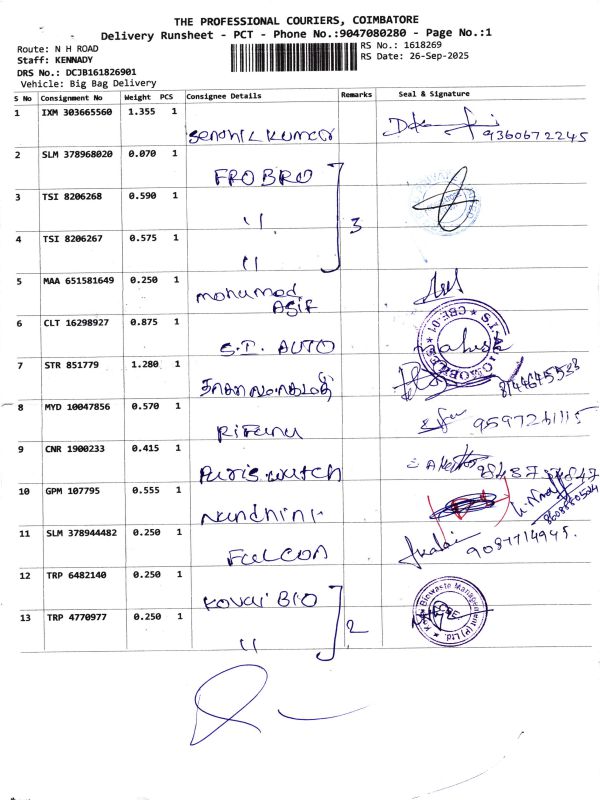 THE PROFESSIONAL COURIERS, COIMBATORE
Delivery Runsheet - PCT - Phone No.:9047080280 - Page No.:1
Route: N H ROAD
RS No.: 1618269
Staff: KENNADY
RS Date: 26-Sep-2025
DRS No.: DCJB161826901
Vehicle: Big Bag Delivery
S No Consignment No Weight PCS Consignee Details Remarks Seal & Signature
1 IXM 303665560 1.355 1 Senthil Kumar 9360672245
2 SLM 378968020 0.070 1 FROBRO
3 TSI 8206268 0.590 1 " 3
4 TSI 8206267 0.575 1 "
5 MAA 651581649 0.250 1 mohamed ASIF
6 CLT 16298927 0.875 1 S.T. AUTO
7 STR 851779 1.280 1
8 MYD 10047856 0.570 1 Rifana 9597261115
9 CNR 1900233 0.415 1 Paris watch
10 GPM 107795 0.555 1 Nandhini
11 SLM 378944482 0.250 1 FALCON 9087714945.
12 TRP 6482140 0.250 1 KOVAI BIO
13 TRP 4770977 0.250 1 " 2